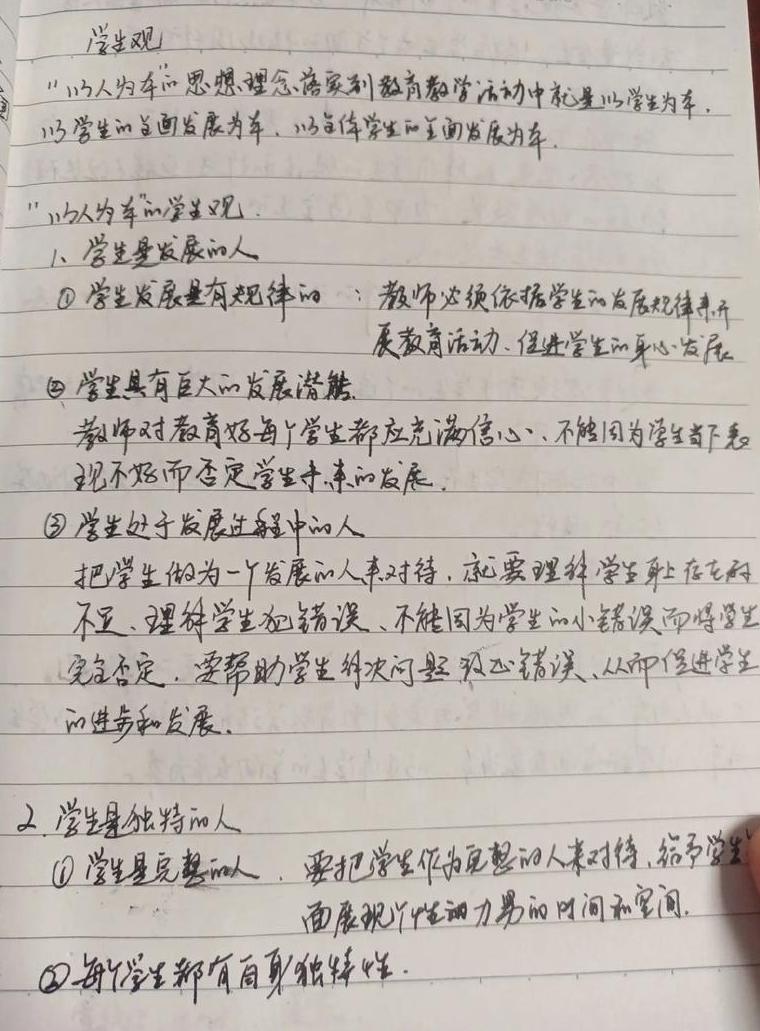 学生观
"以人为本"的思想理念落实到教育教学活动中就是以学生为本,
以学生的全面发展为本,以全体学生的全面发展为本.
"以人为本"的学生观.
1、学生是发展的人
① 学生发展是有规律的 : 教师必须依据学生的发展规律来开
展教育活动、促进学生的身心发展
② 学生具有巨大的发展潜能.
教师对教育好每个学生都应充满信心、不能因为学生当下表
现不好而否定学生未来的发展.
③ 学生处于发展过程中的人
把学生做为一个发展的人来对待,就要理解学生身上存在的
不足、理解学生犯错误、不能因为学生的小错误而将学生
完全否定,要帮助学生解决问题 改正错误、从而促进学生
的进步和发展.
2.学生是独特的人
① 学生是完整的人,要把学生作为完整的人来对待,给予学生
面展现个性和力量的时间和空间.
② 每个学生都有自身独特性.